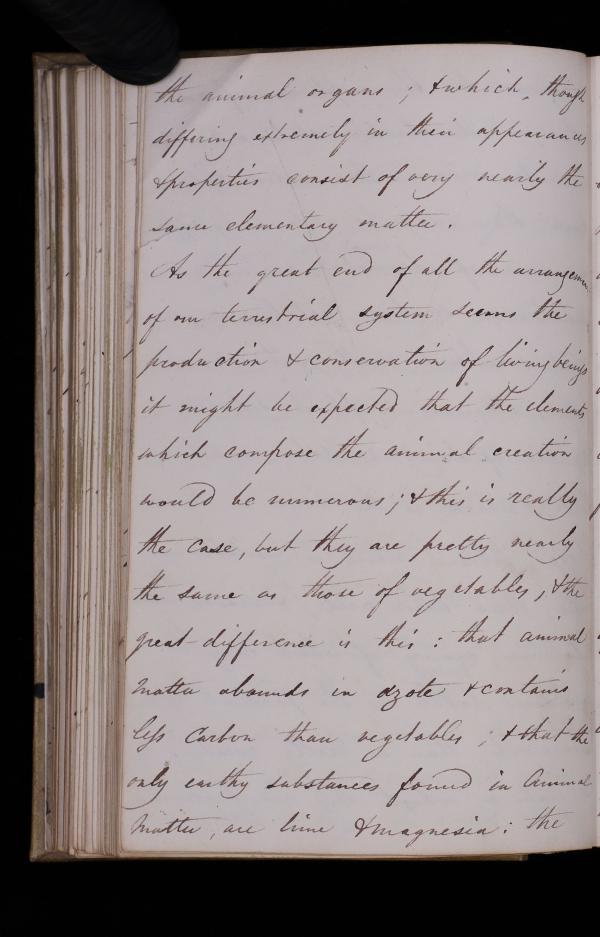 the animal organs ; & which, though
differing extremely in their appearances
& properties consist of very nearly the
same elementary matter.
As the great end of all the arrangemen
of our terrestrial system seems the
production & conservation of living beings
it might be expected that the elements
which compose the animal creation
would be numerous ; & this is really
the case, but they are pretty nearly
the same as those of vegetables, & the
great difference is this : that animal
matter abounds in azote & contains
less Carbon than vegetables ; & that the
only earthy substances found in Animal
Matter, are lime & magnesia : the